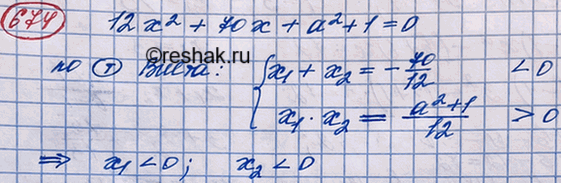 674 12x² + 70x + a² + 1 = 0
©reshak.ru
по Ⓣ Виета: { x₁ + x₂ = -70/12 < 0
x₁ · x₂ = (a²+1)/12 > 0
⇒ x₁ < 0; x₂ < 0